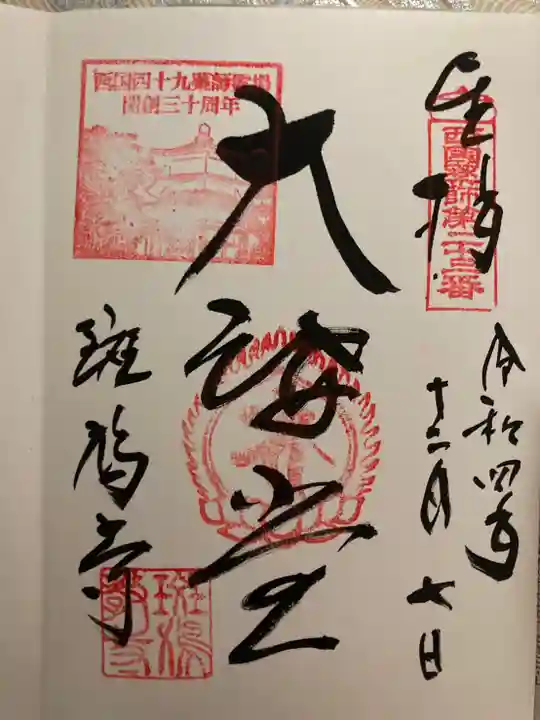 奉拝
西國薬師第二十三番
令和四年
十二月七日
大講堂
西国四十九薬師霊場
開創三十周年
斑鳩寺
斑鳩寺